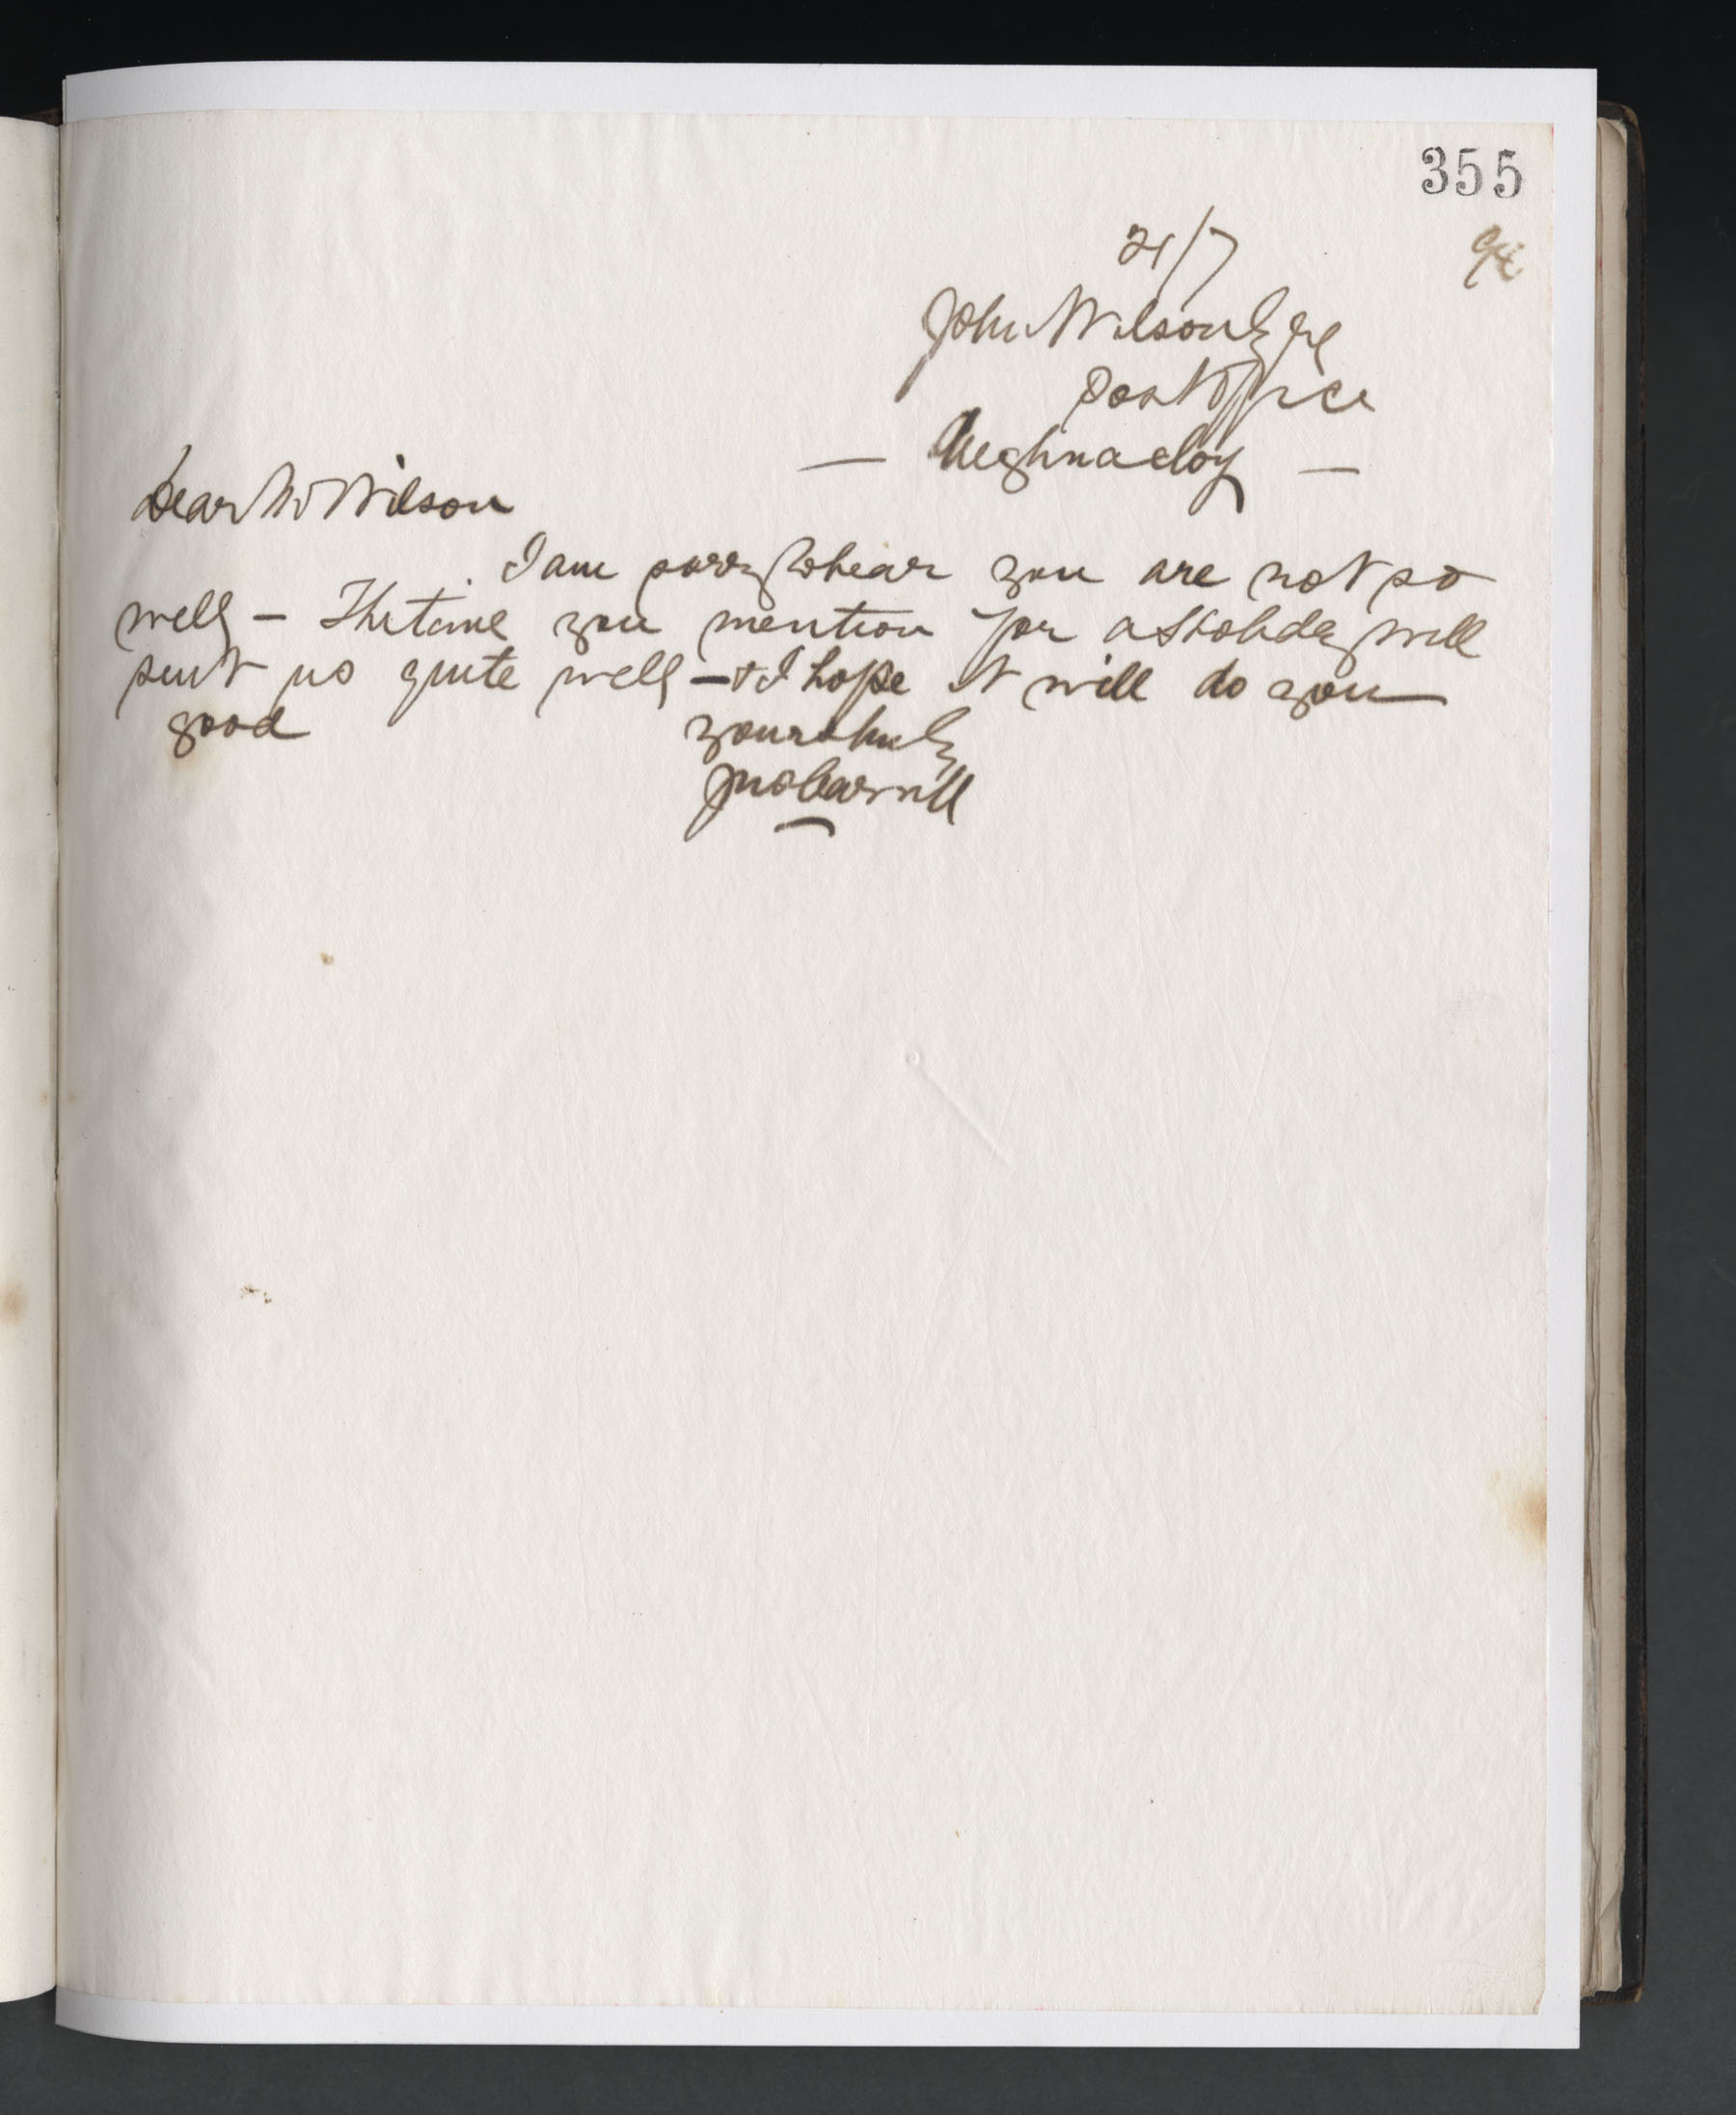 355
21/7
John Wilson Esqre
Post Office
— Aughnacloy —
Dear Mr Wilson
I am sorry to hear you are not so
well – The time you mention for a Holiday will
suit us quite well – & I hope it will do you
good
yours truly